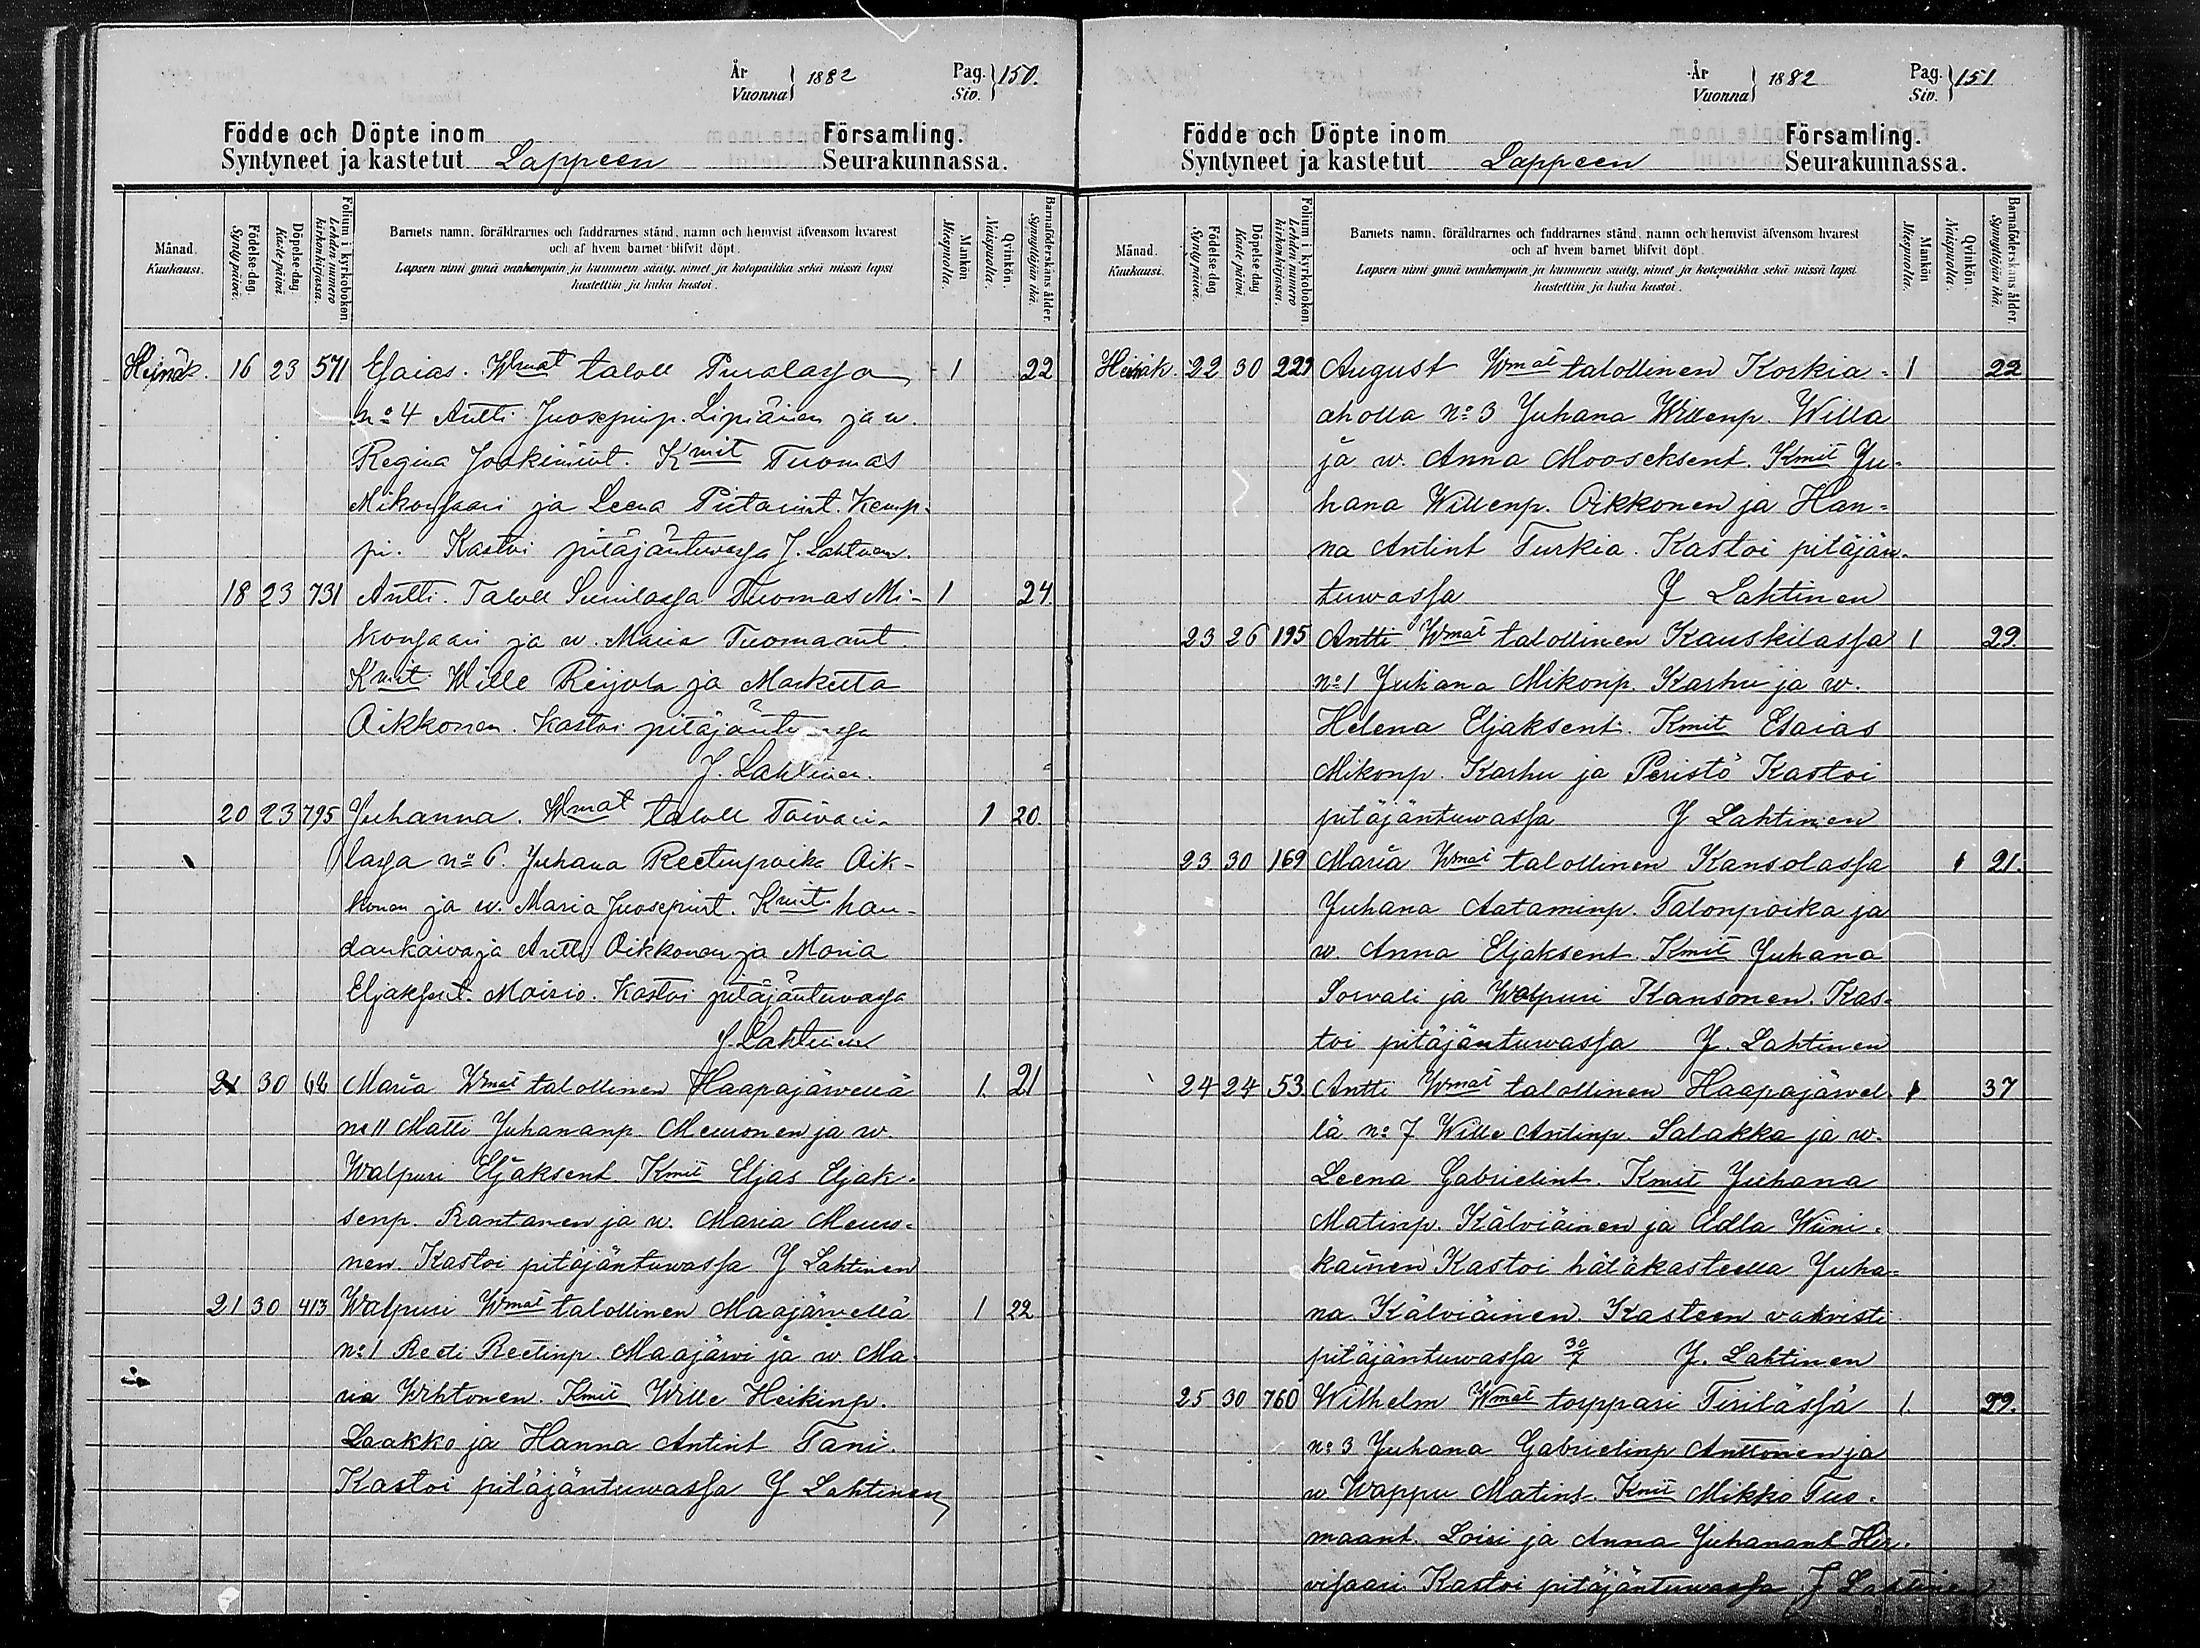 År
Vuonna 1882
Pag.
Siv. 150.
Födde och Döpte inom Församling.
Syntyneet ja kastetut Lappeen Seurakunnassa.
Månad.
Kuukausi.
Födelse-dag.
Syntypäivä.
Döpelse-dag.
Kastepäivä.
Folium i kyrkoboken.
Lehden numero kirkonkirjassa.
Barnets namn, föräldrarnes och faddrarnes stånd, namn och hemvist äfvensom hvarest
och af hvem barnet blifvit döpt.
Lapsen nimi ynnä vanhempain ja kummein sääty, nimet ja kotopaikka sekä missä lapsi
kastettiin ja kuka kastoi.
Mankön.
Miespuolia.
Qvinkön.
Naispuolia.
Barnaföderskans ålder.
Synnyttäjän ikä.
Heinäk. 16 23 571 Esaias. Wmat taloll Puralassa 1 22
no 4 Antti Juosepinp. Lipiäinen ja w.
Regina Joakimint. Kmit Tuomas
Mikonsaari ja Leena Pietarint. Kemp-
pi. Kastoi pitäjäntuwassa J. Lahtinen.
18 23 731 Antti. Taloll Sunilassa Tuomas Mi- 1 24.
konsaari ja w. Maria Tuomaant.
Kmit Wille Reijola ja Marketta
Oikkonen. Kastoi pitäjäntuwassa
J. Lahtinen.
20 23 795 Juhanna. Wmat taloll Toivari- 1 20.
lassa no 6. Juhana Reetinpoika Oik-
konen ja w. Maria Juosepint. Kmit hau-
dankaivaja Antti Oikkonen ja Maria
Eljaksent. Moisio. Kastoi pitäjäntuwassa
J. Lahtinen
21 30 62 Maria Wmat talollinen Haapajärwellä 1. 21
no 11 Matti Juhananp. Meuronen ja w.
Walpuri Eljaksent Kmit Eljas Eljak-
senp. Rantanen ja w. Maria Meuro-
nen. Kastoi pitäjäntuwassa J Lahtinen
21 30 413 Walpuri Wmat talollinen Maajärwellä 1 22
no 1 Reeti Reetinp. Maajärwi ja w Ma-
ria Wihtonen. Kmit Wille Heikinp.
Laakko ja Hanna Antint Tani.
Kastoi pitäjäntuwassa J Lahtinen
År
Vuonna 1882
Pag.
Siv. 151
Födde och Döpte inom Församling.
Syntyneet ja kastetut Lappeen Seurakunnassa.
Månad.
Kuukausi.
Födelse-dag.
Syntypäivä.
Döpelse-dag
Kastepäivä.
Folium i kyrkoboken.
Lehden numero kirkonkirjassa.
Barnets namn, föräldrarnes och faddrarnes stånd, namn och hemvist äfvensom hvarest
och af hvem barnet blifvit döpt.
Lapsen nimi ynnä vanhempain ja kummein sääty, nimet ja kotopaikka sekä missä lapsi
kastettiin ja kuka kastoi.
Mankön
Miespuolia.
Qvinkön.
Naispuolia.
Barnaföderskans ålder.
Synnyttäjän ikä.
Heinäk. 22 30 229 August Wmat talollinen Korkia- 1 22
aholla no 3 Juhana Willenp. Willa
ja w. Anna Mooseksent. Kmit Ju-
hana Willenp. Oikkonen ja Han-
na Antint Turkia. Kastoi pitäjän-
tuwassa J Lahtinen
23 26 195 Antti Wmat talollinen Kauskilassa 1 29.
no 1 Juhana Mikonp. Karhu ja w.
Helena Eljaksent. Kmit Esaias
Mikonp. Karhu ja Peristö Kastoi
pitäjäntuwassa J Lahtinen
23 30 169 Maria Wmat talollinen Kansolassa 1 21.
Juhana Aataminp. Talonpoika ja
w. Anna Eljaksent. Kmit Juhana
Sorvali ja Walpuri Kansonen. Kas-
toi pitäjäntuwassa J. Lahtinen
24 24 53. Antti Wmat talollinen Haapajärwel- 1 37
lä no 7 Wille Antinp. Salakka ja w.
Leena Gabrielint. Kmit Juhana
Matinp. Kälviäinen ja Adla Wiini-
kainen Kastoi hätäkasteella Juha-
na Kälviäinen. Kasteen vahvisti
pitäjäntuwassa 30/7 J. Lahtinen
25 30 760 Wilhelm Wmat torppari Tiritässä 1. 29.
no 3 Juhana Gabrielinp Anttonen ja
w Wappu Matint. Kmit Mikko Tuo-
maant. Loisi ja Anna Juhanant Hir-
visaari. Kastoi pitäjäntuwassa J Lahtinen